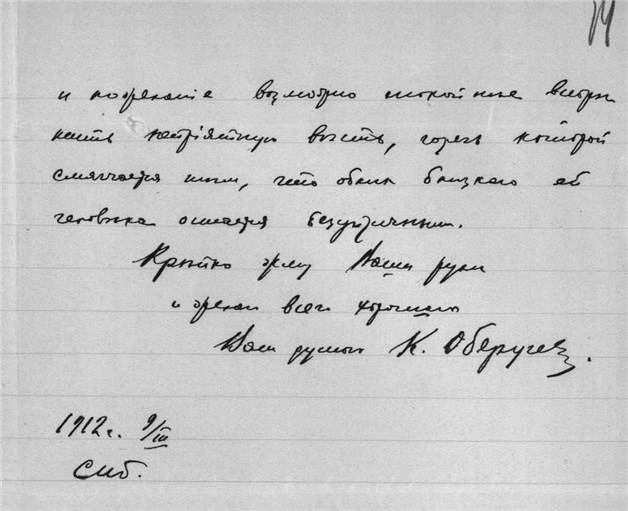 и пожеланіе возможно спокойнѣе встрѣ
тить непріятную вѣсть, горечь которой
смягчается тѣмъ, что облик близкаго ей
человѣка остается безупречным.
Крѣпко жму Ваши руки
и желаю всего хорошаго
Ваш душою К. Оберучев.
1912 г. 9/III
СПб.